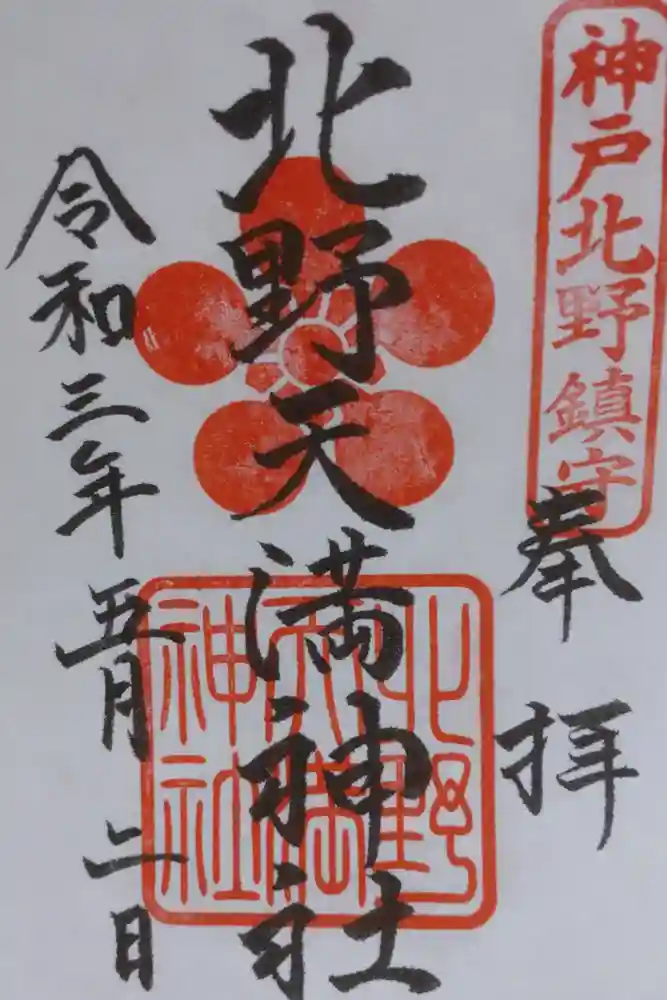 神戸北野鎮守
奉拝
北野天満神社
北野
天満
神社
令和三年五月二日